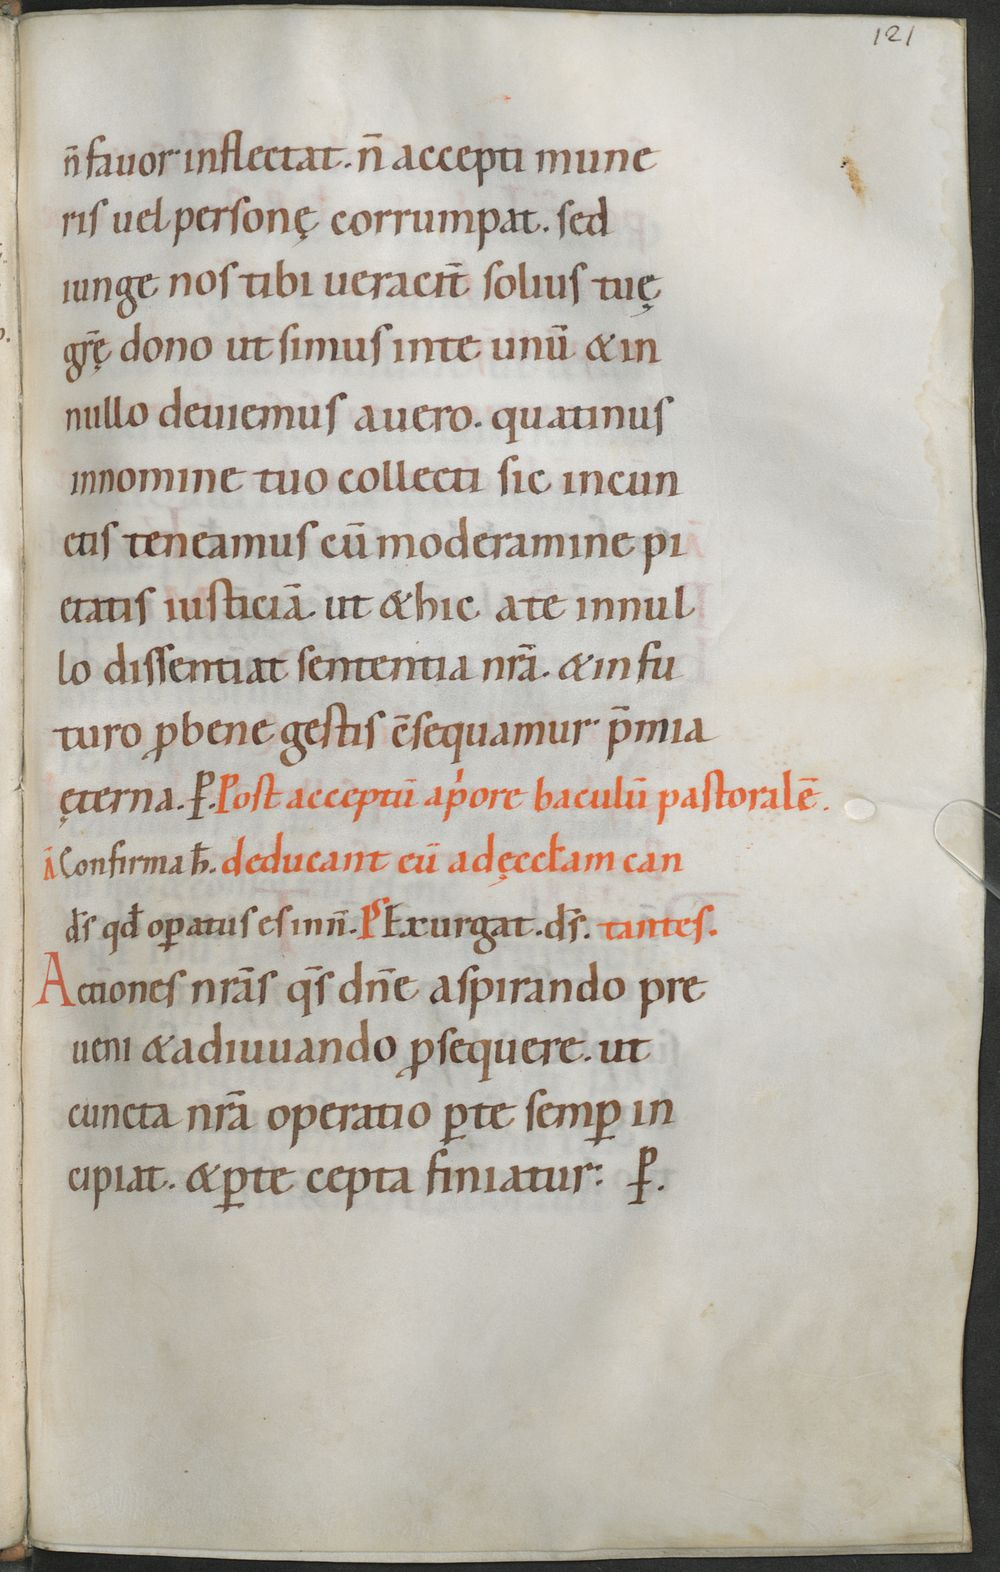 121
n̄ fauor inflectat. n̄ accepti mune
ris uel personę corrumpat. sed
iunge nos tibi ueracit̄ solius tuę
gr̄ę dono ut simus inte unū & in
nullo deuiemus auero. quatinus
innomine tuo collecti sic incun
ctis teneamus cū moderamine pi
etatis iusticiā ut & hic a te in nul
lo dissentiat sententia nr̄a. & in fu
turo ꝓ bene gestis c̄sequamur p̄mia
ęterna. P. Post acceptū a p̍ore baculū pastoralē.
Ā Confirma h̄. deducant eū ad ęccł̄am can
d̄s qđ oꝑatus es in n̄. Ps Exurgat. d̄s. tantes.
Actiones nrās q̄s dn̄e aspirando pre
ueni & adiuuando ꝓsequere. ut
cuncta nr̄a operatio ꝑ te semꝑ in
cipiat. & ꝑ te cepta finiatur: P.